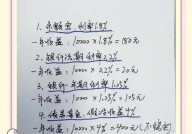 1. 余额宝,利率1.8%
一年收益:10000×1.8%=180元
2. 银行活期利率0.2%
一年收益:10000×0.2%=20元
3. 银行一年期利率1.05%
一年收益:10000×1.05%=105元
利率4%
一年收益:10000×4%=400元(不稳定)